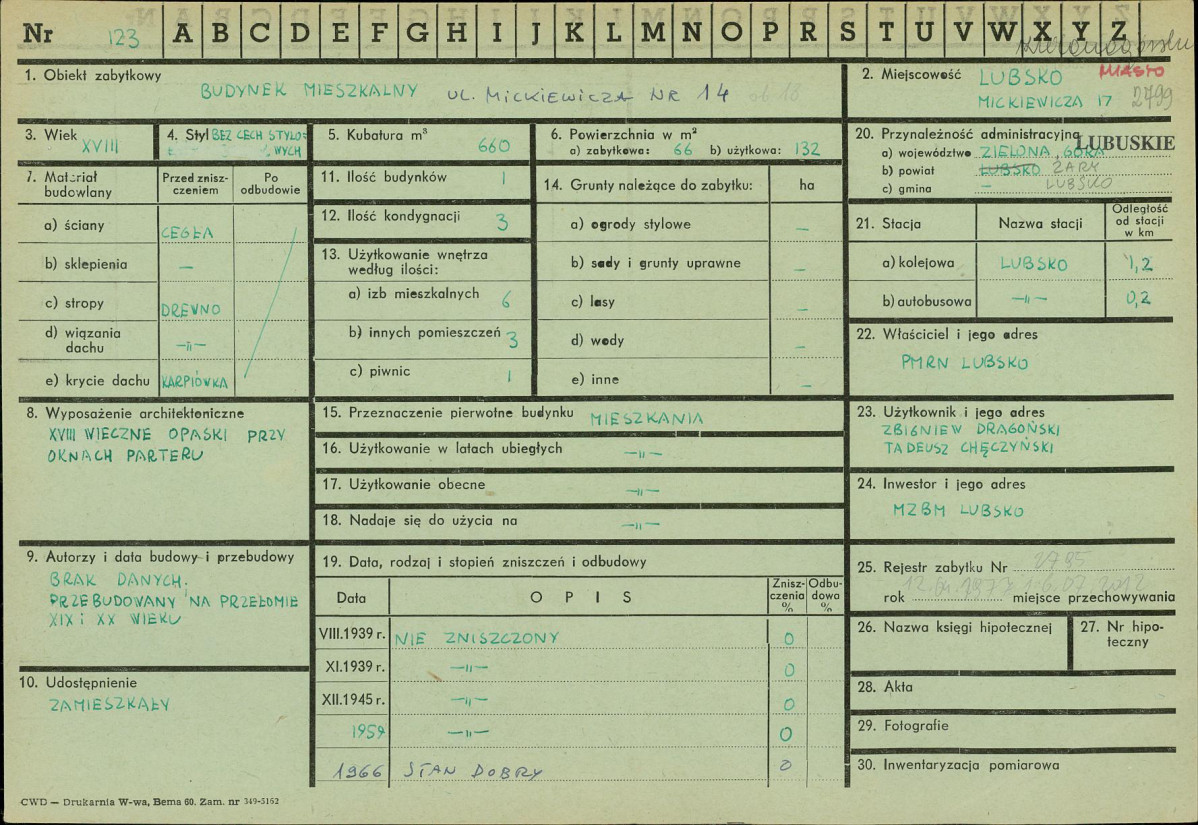 Nr 123 A B C D E F G H I J K L M N O P R S T U V W X Y Z
1. Obiekt zabytkowy
BUDYNEK MIESZKALNY UL. MICKIEWICZA NR 14 ob. 18
2. Miejscowość LUBSKO MIASTO
MICKIEWICZA 17 2799
3. Wiek XVIII
4. Styl BEZ CECH STYLO=
WYCH
5. Kubatura m³
660
6. Powierzchnia w m²
a) zabytkowa: 66 b) użytkowa: 132
20. Przynależność administracyjna
LUBUSKIE
a) województwo ZIELONA GÓRA
b) powiat LUBSKO ŻARY
c) gmina — LUBSKO
7. Materiał budowlany
Przed znisz-
czeniem
Po
odbudowie
a) ściany CEGŁA
b) sklepienia —
c) stropy DREWNO
d) wiązania
dachu —„—
e) krycie dachu KARPIÓWKA
11. Ilość budynków 1
12. Ilość kondygnacji 3
13. Użytkowanie wnętrza
według ilości:
a) izb mieszkalnych 6
b) innych pomieszczeń 3
c) piwnic 1
14. Grunty należące do zabytku: ha
a) ogrody stylowe —
b) sady i grunty uprawne —
c) lasy —
d) wody —
e) inne —
21. Stacja Nazwa stacji
Odległość
od stacji
w km
a) kolejowa LUBSKO 1,2
b) autobusowa —„— 0,2
22. Właściciel i jego adres
PMRN LUBSKO
8. Wyposażenie architektoniczne
XVIII WIECZNE OPASKI PRZY
OKNACH PARTERU
15. Przeznaczenie pierwotne budynku MIESZKANIA
16. Użytkowanie w latach ubiegłych —„—
17. Użytkowanie obecne —„—
18. Nadaje się do użycia na —„—
23. Użytkownik i jego adres
ZBIGNIEW DRAGOŃSKI
TADEUSZ CHĘCZYŃSKI
24. Inwestor i jego adres
MZBM LUBSKO
9. Autorzy i data budowy i przebudowy
BRAK DANYCH.
PRZEBUDOWANY NA PRZEŁOMIE
XIX i XX WIEKU
10. Udostępnienie
ZAMIESZKAŁY
19. Data, rodzaj i stopień zniszczeń i odbudowy
Data OPIS
Znisz-
czenia
%
Odbu-
dowa
%
VIII.1939 r. NIE ZNISZCZONY 0
XI.1939 r. —„— 0
XII.1945 r. —„— 0
1959 —„— 0
1966 STAN DOBRY 0
25. Rejestr zabytku Nr 2795
rok miejsce przechowywania
26. Nazwa księgi hipotecznej
27. Nr hipo-
teczny
28. Akta
29. Fotografie
30. Inwentaryzacja pomiarowa
CWD — Drukarnia W-wa, Bema 60. Zam. nr 349-5162